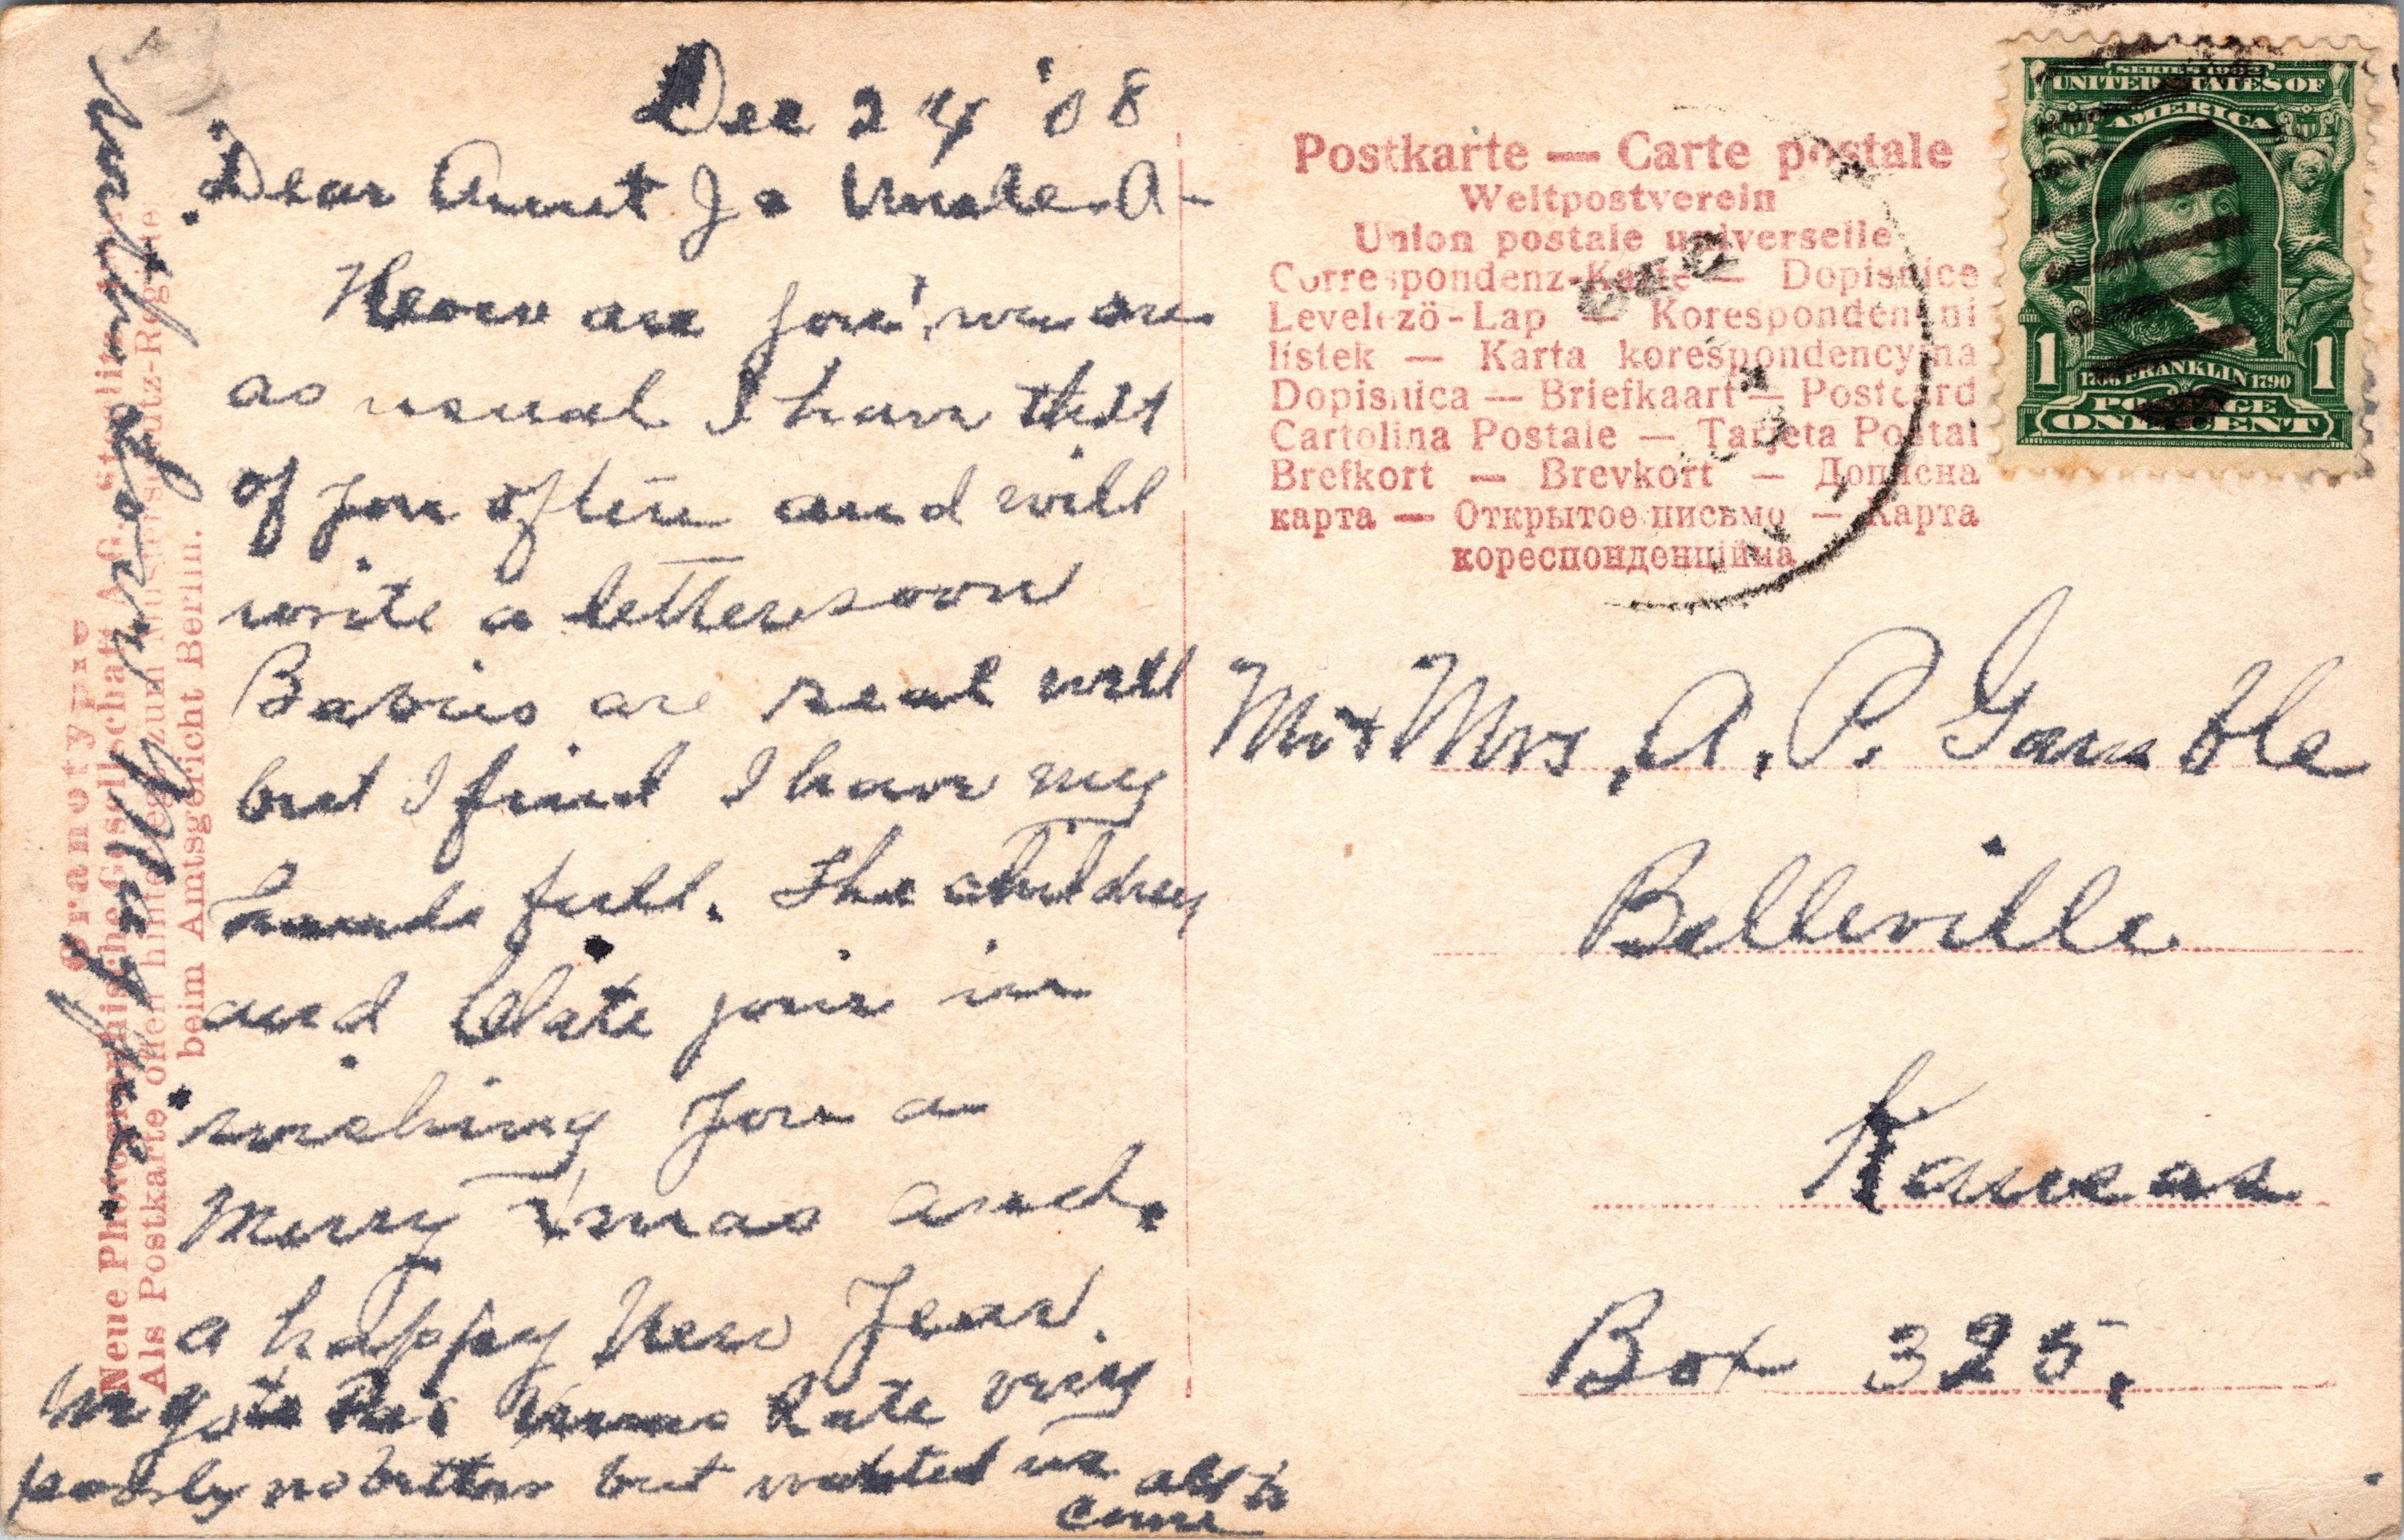 Dec 24 '08
Dear Aunt Jo & Uncle A-
How are you, we are
as usual I have tho't
of you often and will
write a letter soon
Babies are real well
but I find I have my
hands full. The children
and Clate join in
wishing you a
Merry Xmas and
a happy New Year.
We go to Xmas Kate very
poorly no better but wanted us all to
come
your
Postkarte — Carte postale
Weltpostverein
Union postale universelle
Correspondenz-Karte — Dopisnice
Levelező-Lap — Korespondenční
lístek — Karta korespondencyjna
Dopisnica — Briefkaart — Postcard
Cartolina Postale — Tarjeta Postal
Brefkort — Brevkort — Дописна
карта — Открытое письмо — Карта
кореспонденцiйна
SERIES 1902
UNITED STATES OF
AMERICA
1 1706 FRANKLIN 1790 1
POSTAGE
ONE CENT
Mr & Mrs, A. P. Gamble
Belleville
Kansas
Box 325.
Neue Photographische Gesellschaft A.G. Steglitz
Als Postkarte offen hinterlegt zum Musterschutz-Register
beim Amtsgericht Berlin.